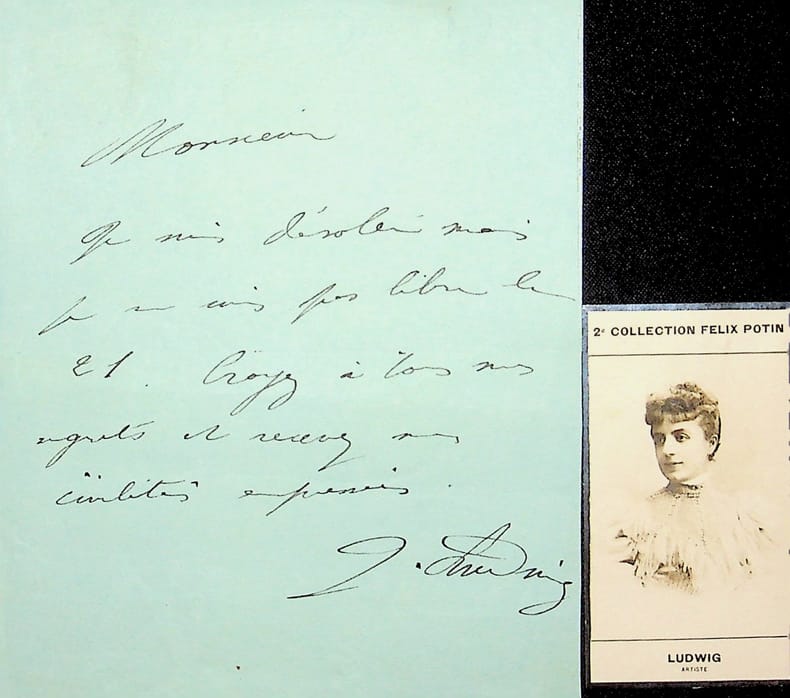 Monsieur
Je suis désolée mais
je ne suis pas libre le
21. Croyez à tous mes
regrets et recevez mes
civilités empressées.
J. Ludwig
2e COLLECTION FELIX POTIN
LUDWIG
ARTISTE